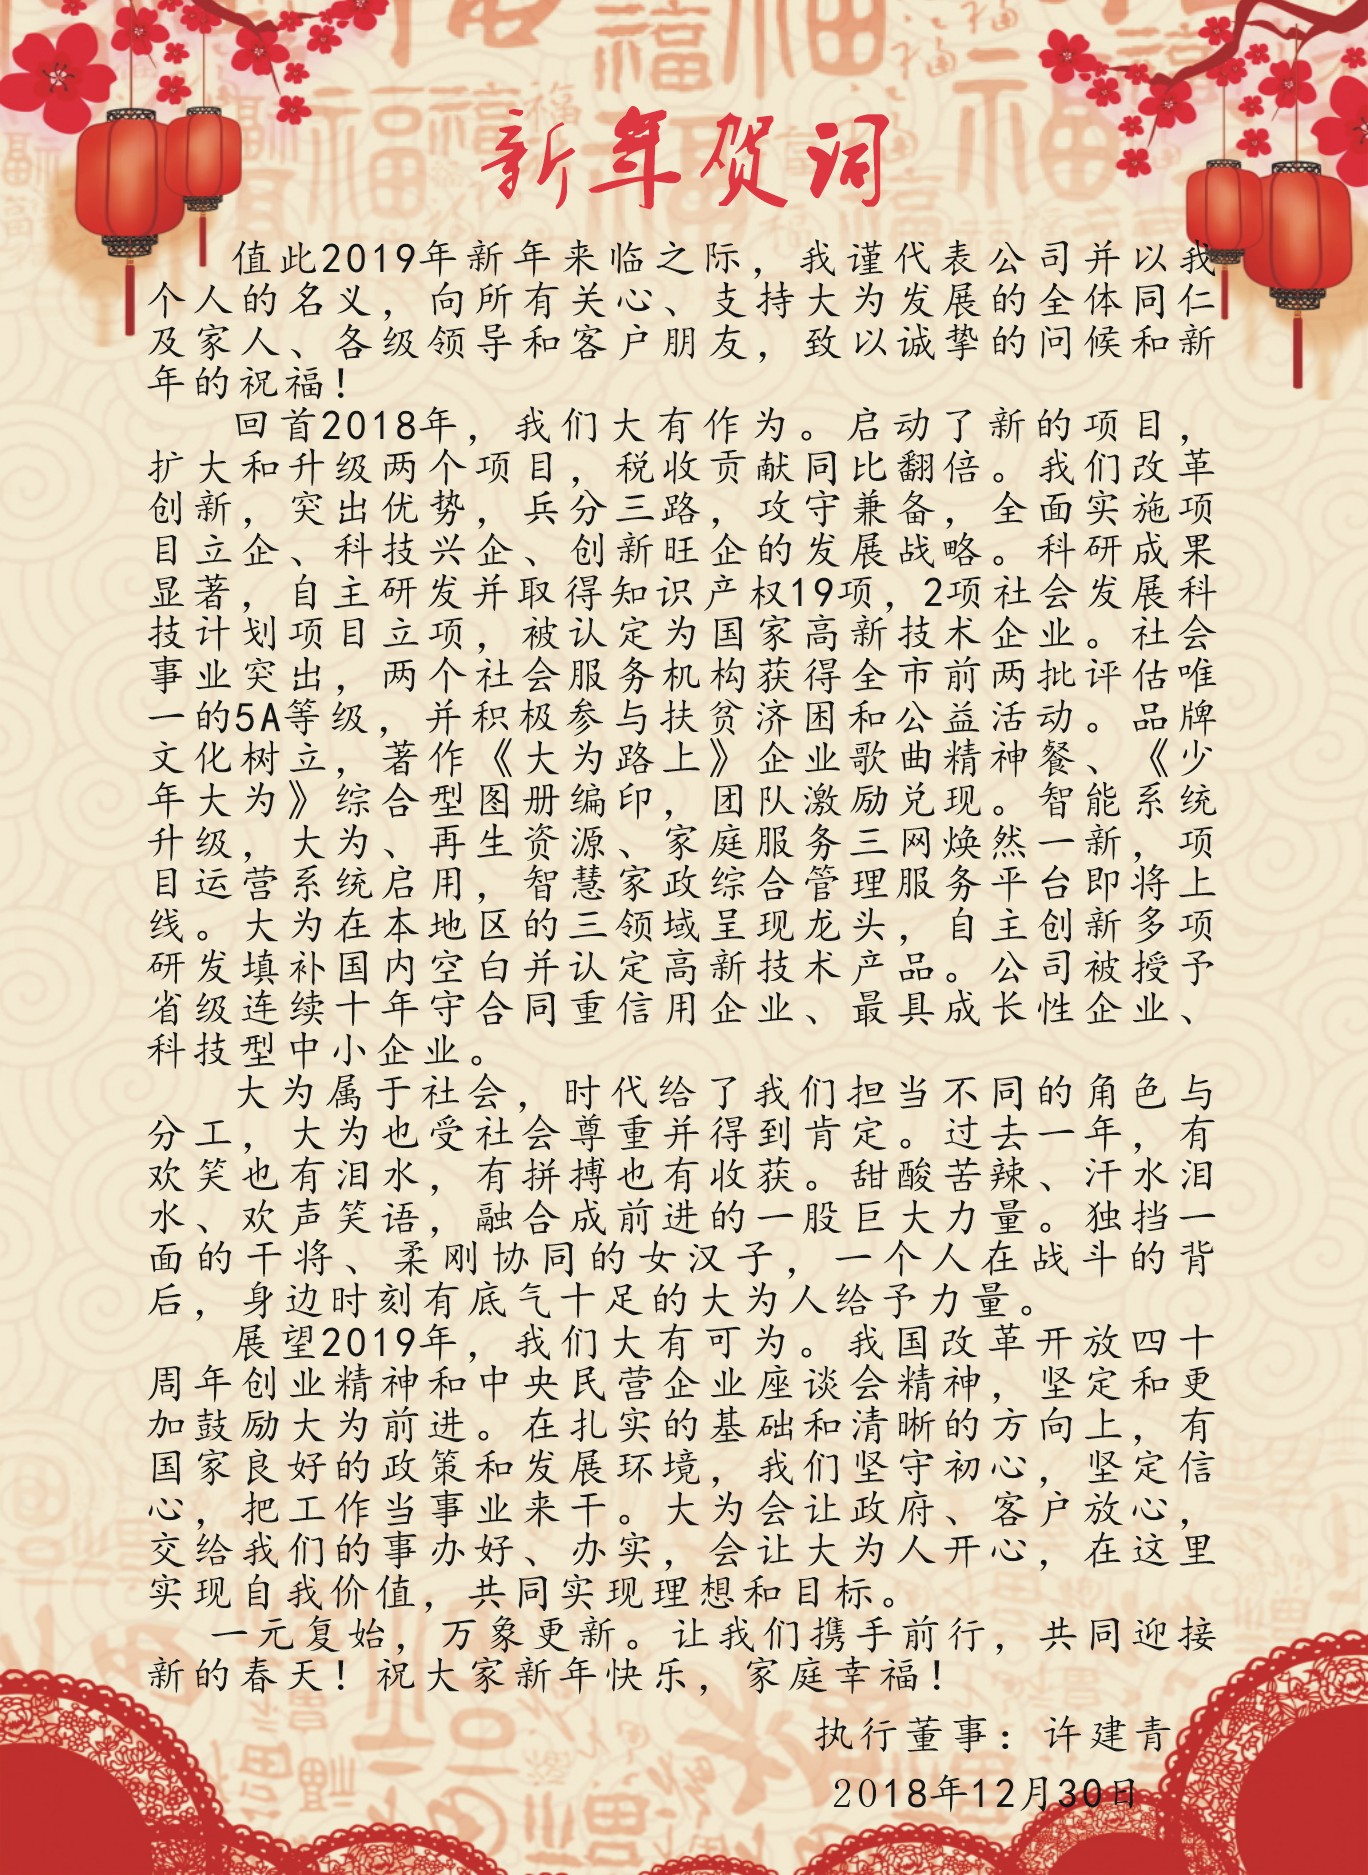 新年贺词
值此2019年新年来临之际，我谨代表公司并以我
个人的名义，向所有关心、支持大为发展的全体同仁
及家人、各级领导和客户朋友，致以诚挚的问候和新
年的祝福！
回首2018年，我们大有作为。启动了新的项目，
扩大和升级两个项目，税收贡献同比翻倍。我们改革
创新，突出优势，兵分三路，攻守兼备，全面实施项
目立企、科技兴企、创新旺企的发展战略。科研成果
显著，自主研发并取得知识产权19项，2项社会发展科
技计划项目立项，被认定为国家高新技术企业。社会
事业突出，两个社会服务机构获得全市前两批评估唯
一的5A等级，并积极参与扶贫济困和公益活动。品牌
文化树立，著作《大为路上》企业歌曲精神餐、《少
年大为》综合型图册编印，团队激励兑现。智能系统
升级，大为、再生资源、家庭服务三网焕然一新，项
目运营系统启用，智慧家政综合管理服务平台即将上
线。大为在本地区的三领域呈现龙头，自主创新多项
研发填补国内空白并认定高新技术产品。公司被授予
省级连续十年守合同重信用企业、最具成长性企业、
科技型中小企业。
大为属于社会，时代给了我们担当不同的角色与
分工，大为也受社会尊重并得到肯定。过去一年，有
欢笑也有泪水，有拼搏也有收获。甜酸苦辣、汗水泪
水、欢声笑语，融合成前进的一股巨大力量。独挡一
面的干将、柔刚协同的女汉子，一个人在战斗的背
后，身边时刻有底气十足的大为人给予力量。
展望2019年，我们大有可为。我国改革开放四十
周年创业精神和中央民营企业座谈会精神，坚定和更
加鼓励大为前进。在扎实的基础和清晰的方向上，有
国家良好的政策和发展环境，我们坚守初心，坚定信
心，把工作当事业来干。大为会让政府、客户放心，
交给我们的事办好、办实，会让大为人开心，在这里
实现自我价值，共同实现理想和目标。
一元复始，万象更新。让我们携手前行，共同迎接
新的春天！祝大家新年快乐，家庭幸福！
执行董事：许建青
2018年12月30日